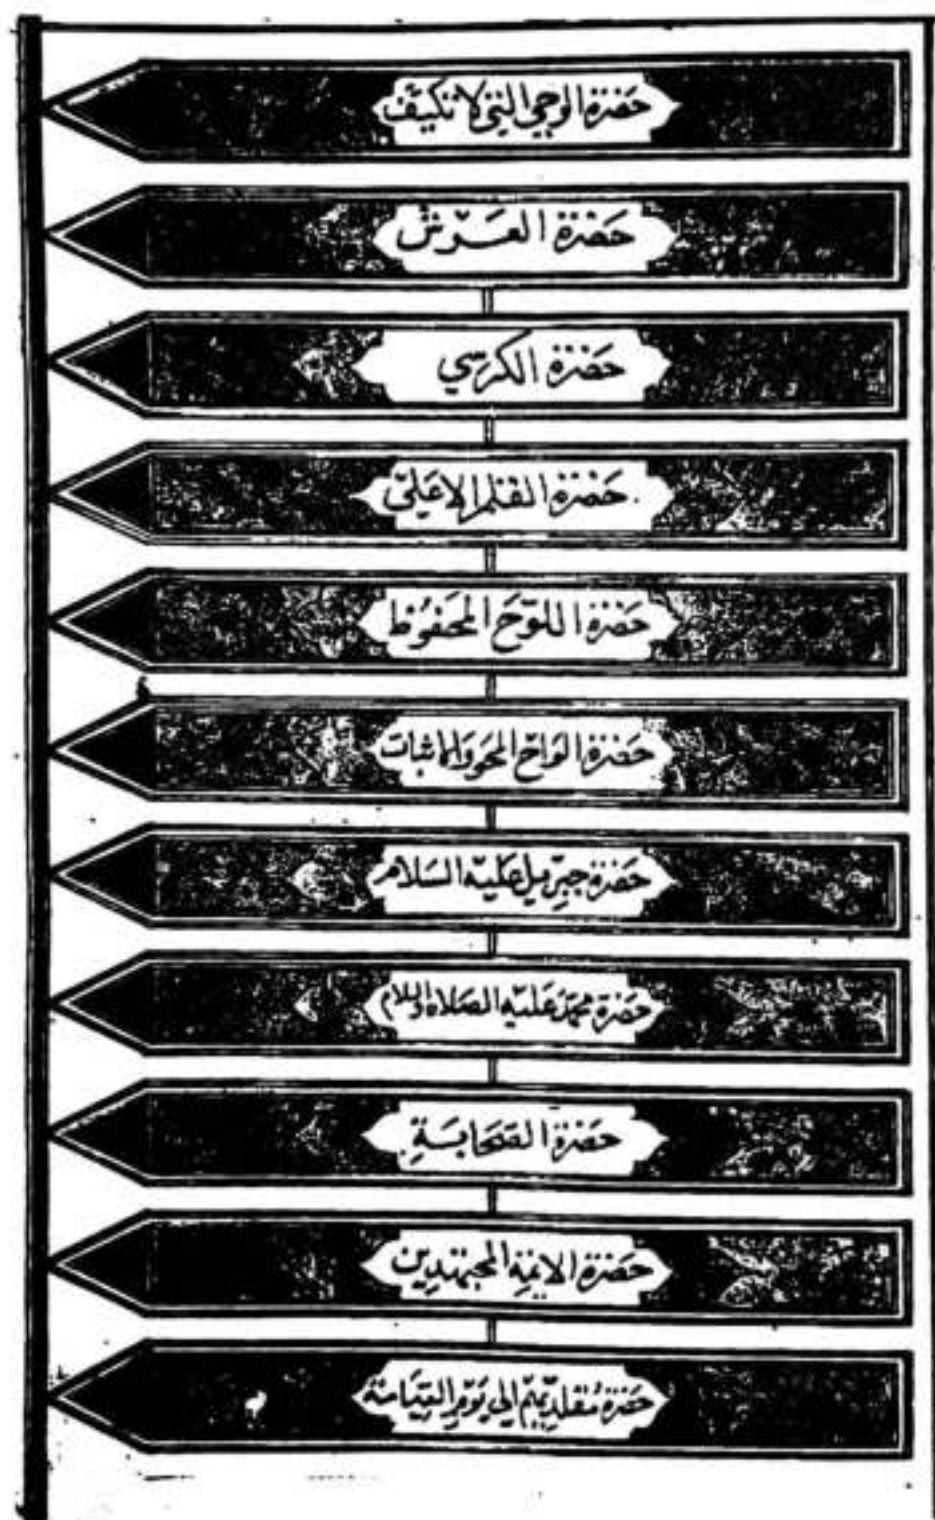 حضرة الوحي التي لا تكيف
حضرة العرش
حضرة الكرسي
حضرة القلم الاعلى
حضرة اللوح المحفوظ
حضرة الواح المحو والاثبات
حضرة جبريل عليه السلام
حضرة محمد عليه الصلاة والسلام
حضرة الصحابة
حضرة الائمة المجتهدين
حضرة مقلديهم الي يوم القيامة